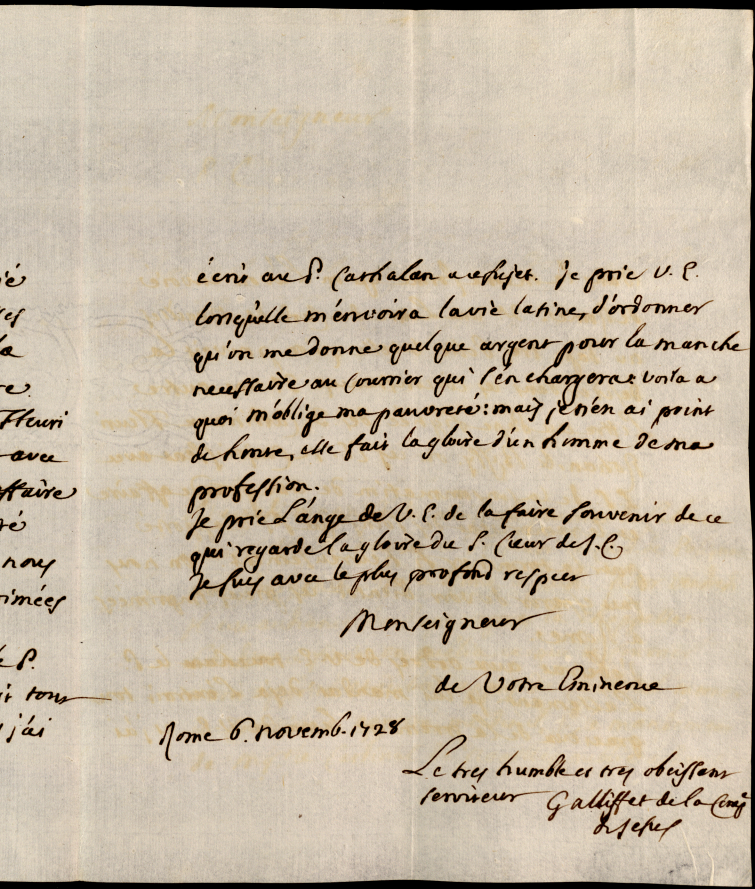 ié
res
la
re.
Fleuri
avec
ffaire
té
nous
rimées
e P.
it tout
j'ai
écris au P. Carthalan a ce sujet. Je prie V. E.
lorsqu'elle m'envoira la vie latine, d'ordonner
qu'on me donne quelque argent pour la manche
necessaire au Courrier qui s'en chargera: voila a
quoi m'oblige ma pauvreté: mais je n'en ai point
de honte, elle fait la gloire d'un homme de ma
profession.
Je prie L'ange de V. E. de la faire souvenir de ce
qui regarde la gloire du S. Cœur de J. C.
Je suis avec le plus profond respect
Monseigneur
de Votre Eminence
Rome 6. novemb. 1728
Le tres humble et tres obeissant
serviteur Galliffet de la Comp.e
de Jesus